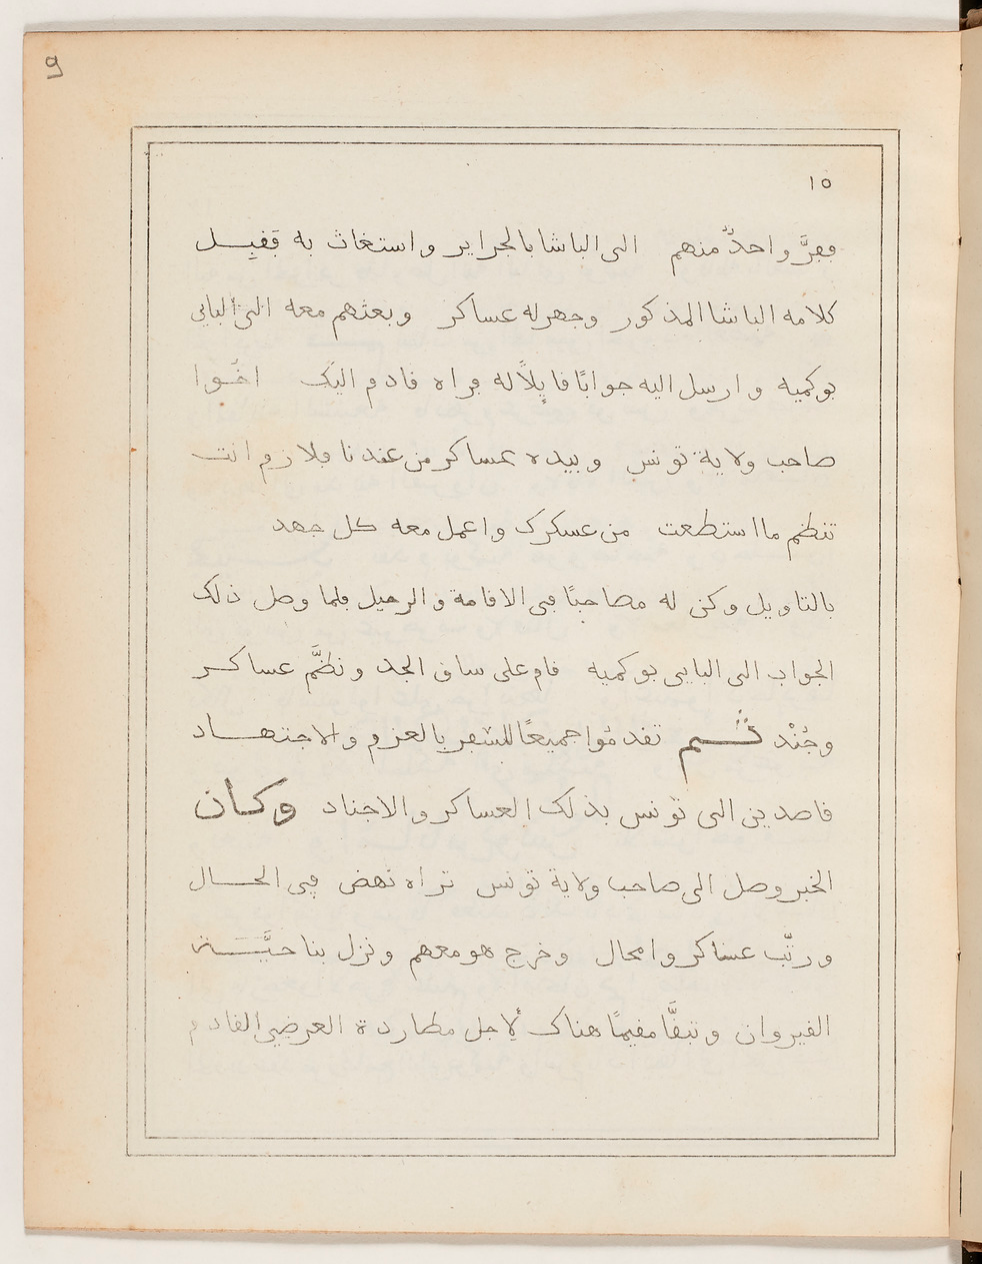 9
١٥
ففرَّ واحدٌ منهم الى الباشا بالجراير واستغاث به فقبِـــل
كلامه الباشا المذكور وجهز له عساكر وبعثهم معه الى الباى
بوكميه وارسل اليه جوابًا قايلاً له فراه قادم اليك اخُـوا
صاحب ولاية تونس وبيده عساكر من عندنا فلازم انت
تنظم ما استطعت من عسكرك واعمل معه كل جهد
بالتاويل وكن له مصاحبًا فى الاقامة والرحيل فلما وصل ذلك
الجواب الى البايى بوكميه قام على ساق الجد ونظَّم عساكـر
وجُنْد ثـــم تقدمُوا جميعًا للسفر بالعزم والاجتهـــاد
قاصدين الى تونس بذلك العساكر والاجناد وكـان
الخبر وصل الى صاحب ولاية تونس تراه نهض فى الحـــال
ورتّب عساكر وامحال وخرج هو معهم ونزل بناحيَّـــة
القيروان وتبقَّا مقيمًا هناك لاجل مطاردة العرضى القادم